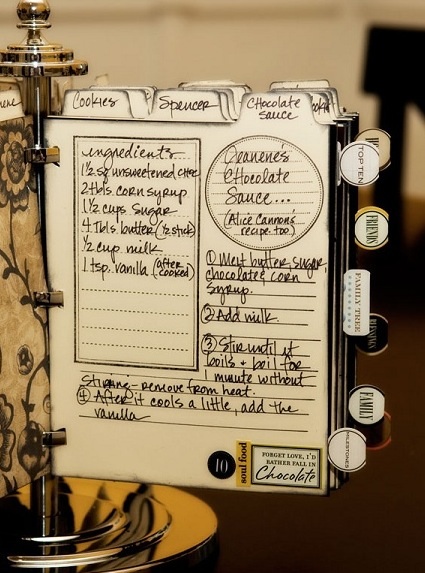 Cookies
Spencer
Chocolate
Sauce
ingredients
1 1/2 sq unsweetened choc
2 tbls. corn syrup
1 1/2 cups sugar
4 Tbls butter (1/2 stick)
1/2 cup milk
1 tsp. vanilla (after
cooked)
Deanene's
Chocolate
Sauce...
(Alice Cannon's
recipe too)
① Melt butter, sugar,
chocolate & corn
syrup.
② Add milk.
③ Stir until it
boils & boil for
1 minute without
stirring - remove from heat.
④ After it cools a little, add the
vanilla
10
soul food
FORGET LOVE, I'D
RATHER FALL IN
Chocolate
TOP TEN
FRIENDS
FAMILY TREE
FAMILY
MILESTONES